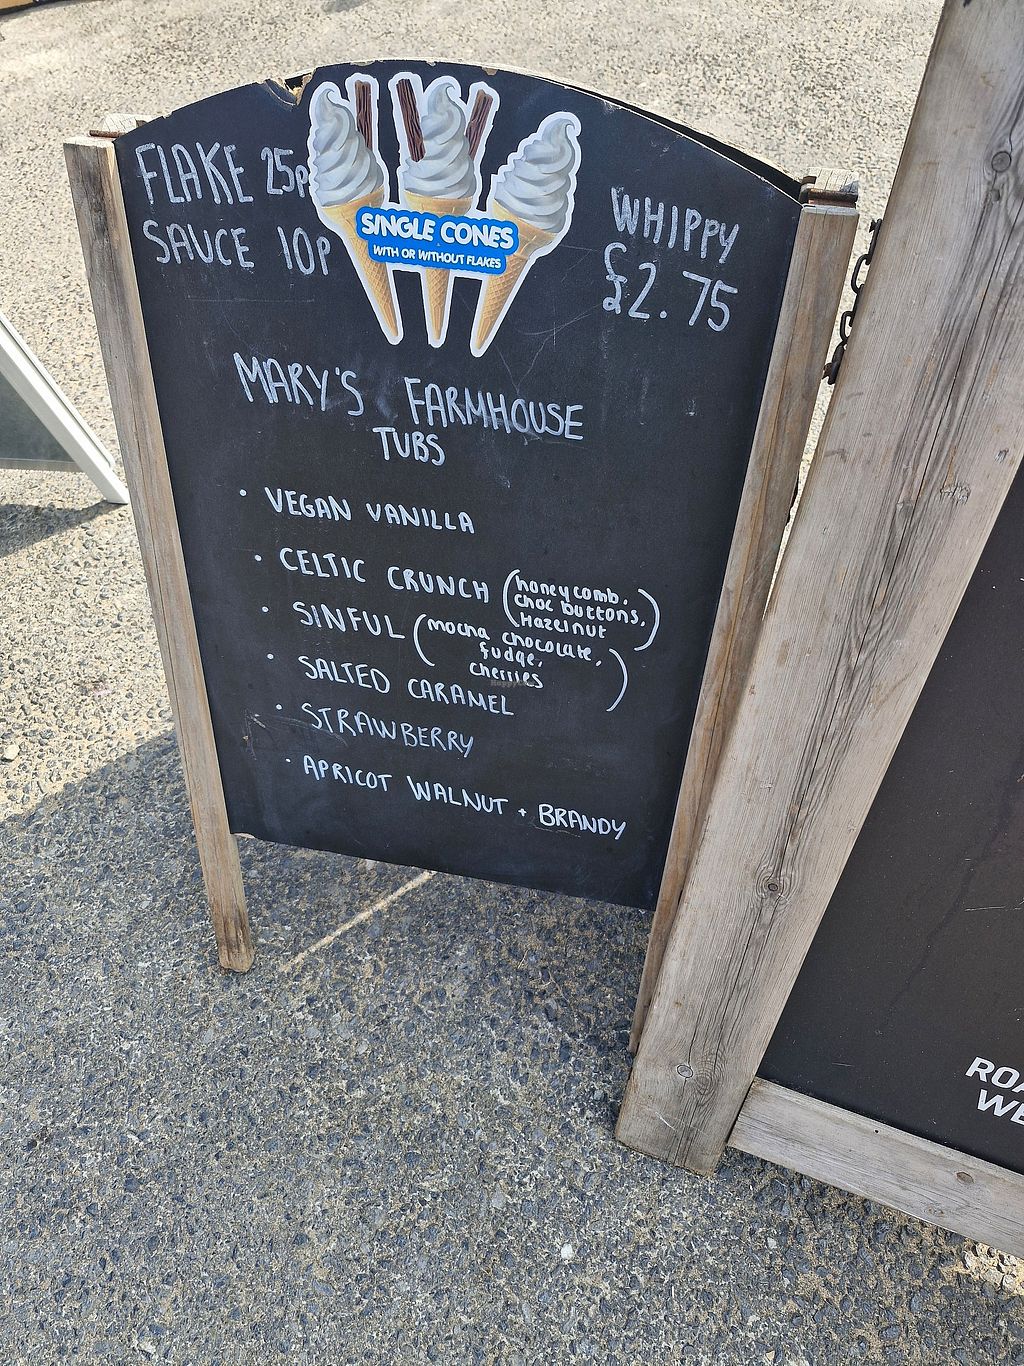 FLAKE 25p
SAUCE 10p
SINGLE CONES
WITH OR WITHOUT FLAKES
WHIPPY
£2.75
MARY'S FARMHOUSE
TUBS
• VEGAN VANILLA
• CELTIC CRUNCH (honeycomb,
choc buttons,
Hazelnut)
• SINFUL (mocha chocolate,
fudge,
cherries)
• SALTED CARAMEL
• STRAWBERRY
• APRICOT WALNUT + BRANDY